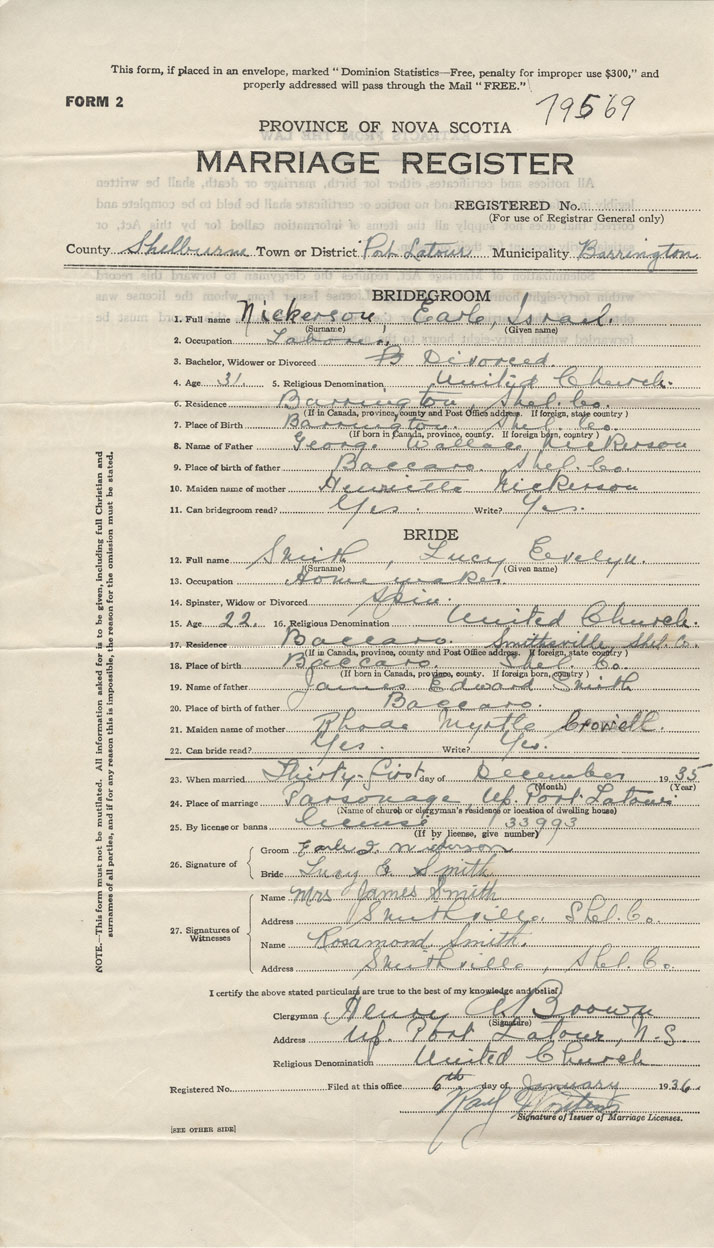 This form, if placed in an envelope, marked "Dominion Statistics—Free, penalty for improper use $300," and
properly addressed will pass through the Mail "FREE."
FORM 2
79569
PROVINCE OF NOVA SCOTIA
MARRIAGE REGISTER
REGISTERED No.
(For use of Registrar General only)
County Shelburne Town or District Port Latour Municipality Barrington
BRIDEGROOM
1. Full name Nickerson, Earle, Israel.
(Surname) (Given name)
2. Occupation Laborer.
3. Bachelor, Widower or Divorced B Divorced.
4. Age 31. 5. Religious Denomination United Church.
6. Residence Barrington, Shel. Co.
(If in Canada, province, county and Post Office address. If foreign, state country)
7. Place of Birth Barrington. Shel. Co.
(If born in Canada, province, county. If foreign born, country)
8. Name of Father George Wallace Nickerson
9. Place of birth of father Baccaro. Shel. Co.
10. Maiden name of mother Henrietta Nickerson
11. Can bridegroom read? Yes. Write? Yes.
BRIDE
12. Full name Smith, Lucy Evelyn.
(Surname) (Given name)
13. Occupation Homemaker
14. Spinster, Widow or Divorced Spin.
15. Age 22. 16. Religious Denomination United Church.
17. Residence Baccaro. Smithsville, Shel. Co.
(If in Canada, province, county and Post Office address. If foreign, state country)
18. Place of birth Baccaro. Shel. Co.
(If born in Canada, province, county. If foreign born, country)
19. Name of father James Edward Smith
20. Place of birth of father Baccaro.
21. Maiden name of mother Rhoda Myrtle Crowell.
22. Can bride read? Yes. Write? Yes.
23. When married Thirty-first day of December 1935
(Month) (Year)
24. Place of marriage Parsonage, Up. Port Latour
(Name of church or clergyman's residence or location of dwelling house)
25. By license or banns license 133993
(If by license, give number)
26. Signature of
Groom Earle I. Nickerson
Bride Lucy E. Smith
27. Signatures of Witnesses
Name Mrs James Smith
Address Smithville, Shel. Co.
Name Rosamond Smith.
Address Smithville, Shel. Co.
I certify the above stated particulars are true to the best of my knowledge and belief.
Clergyman Henry Brown
(Signature)
Address Up. Port Latour, N.S.
Religious Denomination United Church
Registered No. Filed at this office 6th day of January 1936
Signature of Issuer of Marriage Licenses.
[SEE OTHER SIDE]
NOTE.—This form must not be mutilated. All information asked for is to be given, including full Christian and
surnames of all parties, and if for any reason this is impossible, the reason for the omission must be stated.